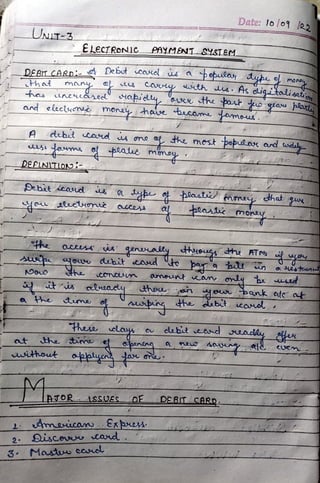 Date: 10/09/22
UNIT-3
ELECTRONIC PAYMENT SYSTEM
DEBIT CARD:- A Debit card is a popular type of money
that many of us carry with us. As digitalisation
has increased rapidly over the past few years plastic
and electronic money have become famous.
A debit card is one of the most popular and widely
use forms of plastic money.
DEFINITION:-
Debit card is a type of plastic money that give
you electronic access of plastic money.
The access is generally through the ATM if you
swipe your debit card to pay a bill in a restaurant
Now the concern amount can only be used
if it is already there in your bank a/c at
the time of swiping the debit card.
These days a debit card readily offer
at the time of opening a new saving a/c even
without applying for one.
MAJOR ISSUES OF DEBIT CARD
1. American Express.
2. Discover card.
3. Master card